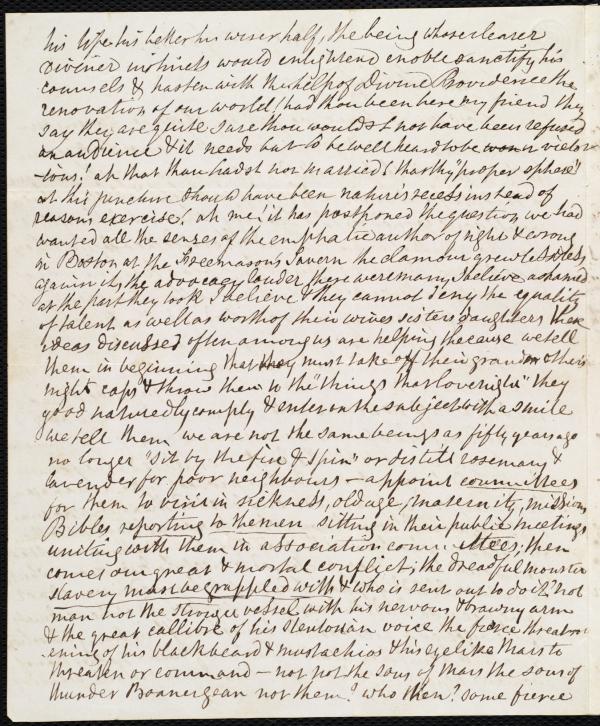 his life his better his wiser half, the being whose clearer
diviner instincts would enlightend enoble sanctify his
counsels & hasten with the help of Divine Providence the
renovation of our world, had thou been here my friend they
say they are quite sure thou wouldst not have been refused
an audience & it needs but to be well heard to be victor
-ious! ah that thou hadst not married! that thy "proper sphere"
at this juncture should have been nature's recess instead of
reasons exercise! ah me! it has postponed the question we had
wanted all the senses of the emphatic author of right & wrong
in Boston at the Freemasons Tavern the clamour grew less
again its advocacy louder, there were many I believe ashamed
at the part they took I believe & they cannot deny the equality
of talent as well as worth of their wives sisters daughters these
ideas discussed often among us are helping the cause we tell
them in beginning that they must take off their grandmothers
night caps & throw them to the "things that love night" they
good naturedly comply & enter on the subject with a smile
we tell them we are not the same beings as fifty years ago
no longer "sit by the fire & spin" or distill rosemary &
lavender for poor neighbours - appoint committees
for them to visit in sickness, old age, maternity, missions
Bibles reporting to the men sitting in their public meetings
uniting with them in association committees; then
comes our great & mortal conflict; the dreadful monster
slavery must be grappled with & who is sent out to do it? not
man not the stronger vessel with his nervous & brawny arm
& the great callibre of his stentorian voice the fierce threat
ening of his black beard & mustachios & his eye like Mars to
threaten or command - not not the sons of Mars the sons of
thunder Boanergean not them? who then? some fierce